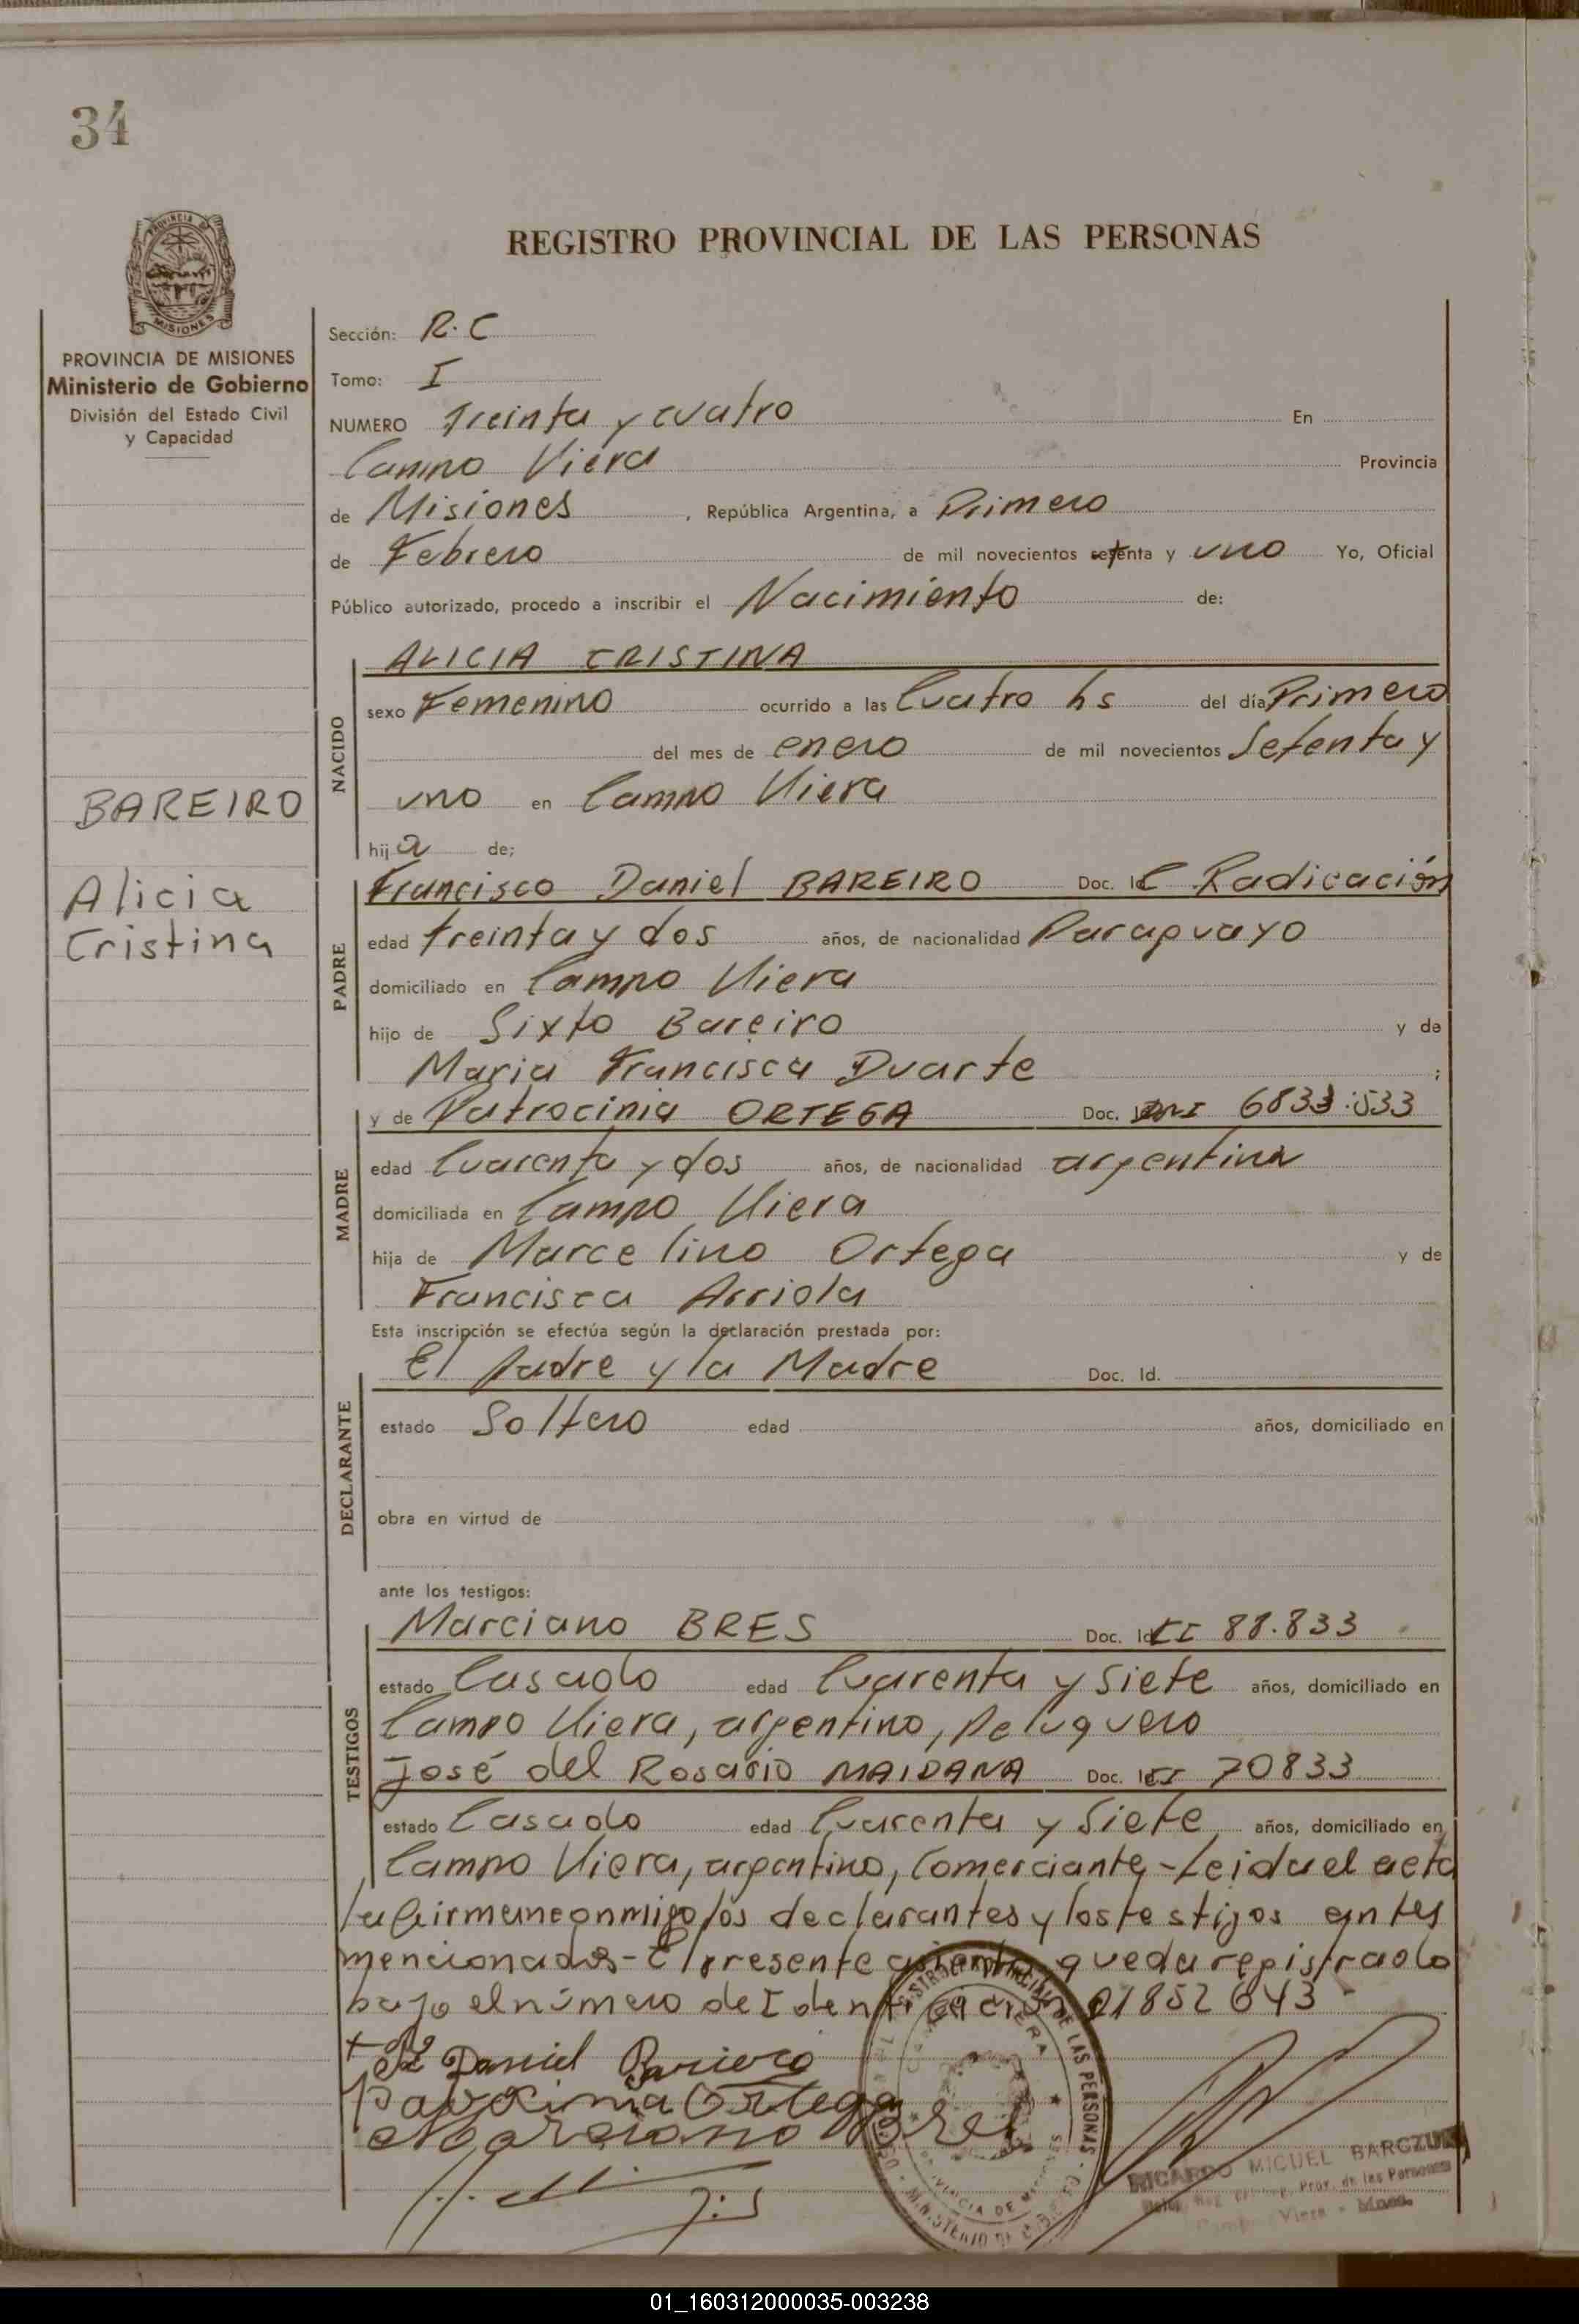 34
REGISTRO PROVINCIAL DE LAS PERSONAS
PROVINCIA DE
MISIONES
PROVINCIA DE MISIONES
Ministerio de Gobierno
División del Estado Civil
y Capacidad
BAREIRO
Alicia
Cristina
Sección: R.C
Tomo: I
NUMERO Treinta y cuatro En
Campo Viera Provincia
de Misiones , República Argentina, a Primero
de Febrero de mil novecientos setenta y uno Yo, Oficial
Público autorizado, procedo a inscribir el Nacimiento de:
NACIDO
ALICIA CRISTINA
sexo Femenino ocurrido a las Cuatro hs del día Primero
del mes de enero de mil novecientos Setenta y
uno en Campo Viera
hija de;
PADRE
Francisco Daniel BAREIRO Doc. Id C Radicación
edad treinta y dos años, de nacionalidad Paraguayo
domiciliado en Campo Viera
hijo de Sixto Bareiro y de
Maria Francisca Duarte ;
MADRE
y de Patrocinia ORTEGA Doc. DNI 6833.533
edad Cuarenta y dos años, de nacionalidad argentina
domiciliada en Campo Viera
hija de Marcelino Ortega y de
Francisca Arriola
Esta inscripción se efectúa según la declaración prestada por:
DECLARANTE
El Padre y la Madre Doc. Id.
estado Soltero edad años, domiciliado en
obra en virtud de
ante los testigos:
TESTIGOS
Marciano BRES Doc. Id CI 88.833
estado Casado edad Cuarenta y Siete años, domiciliado en
Campo Viera, argentino, Peluquero
José del Rosario MAIDANA Doc. Id CI 70833
estado Casado edad Cuarenta y Siete años, domiciliado en
Campo Viera, argentino, Comerciante - Leida el acta
la firman conmigo los declarantes y los testigos antes
mencionados - El presente asiento queda registrado
bajo el número de Identificación 21852643 -
Daniel Bareiro
Patrocinia Ortega
Marciano Bres
RICARDO MIGUEL BARCZUK
Prov. de las Personas
Campo Viera - Mnes.
01_160312000035-003238